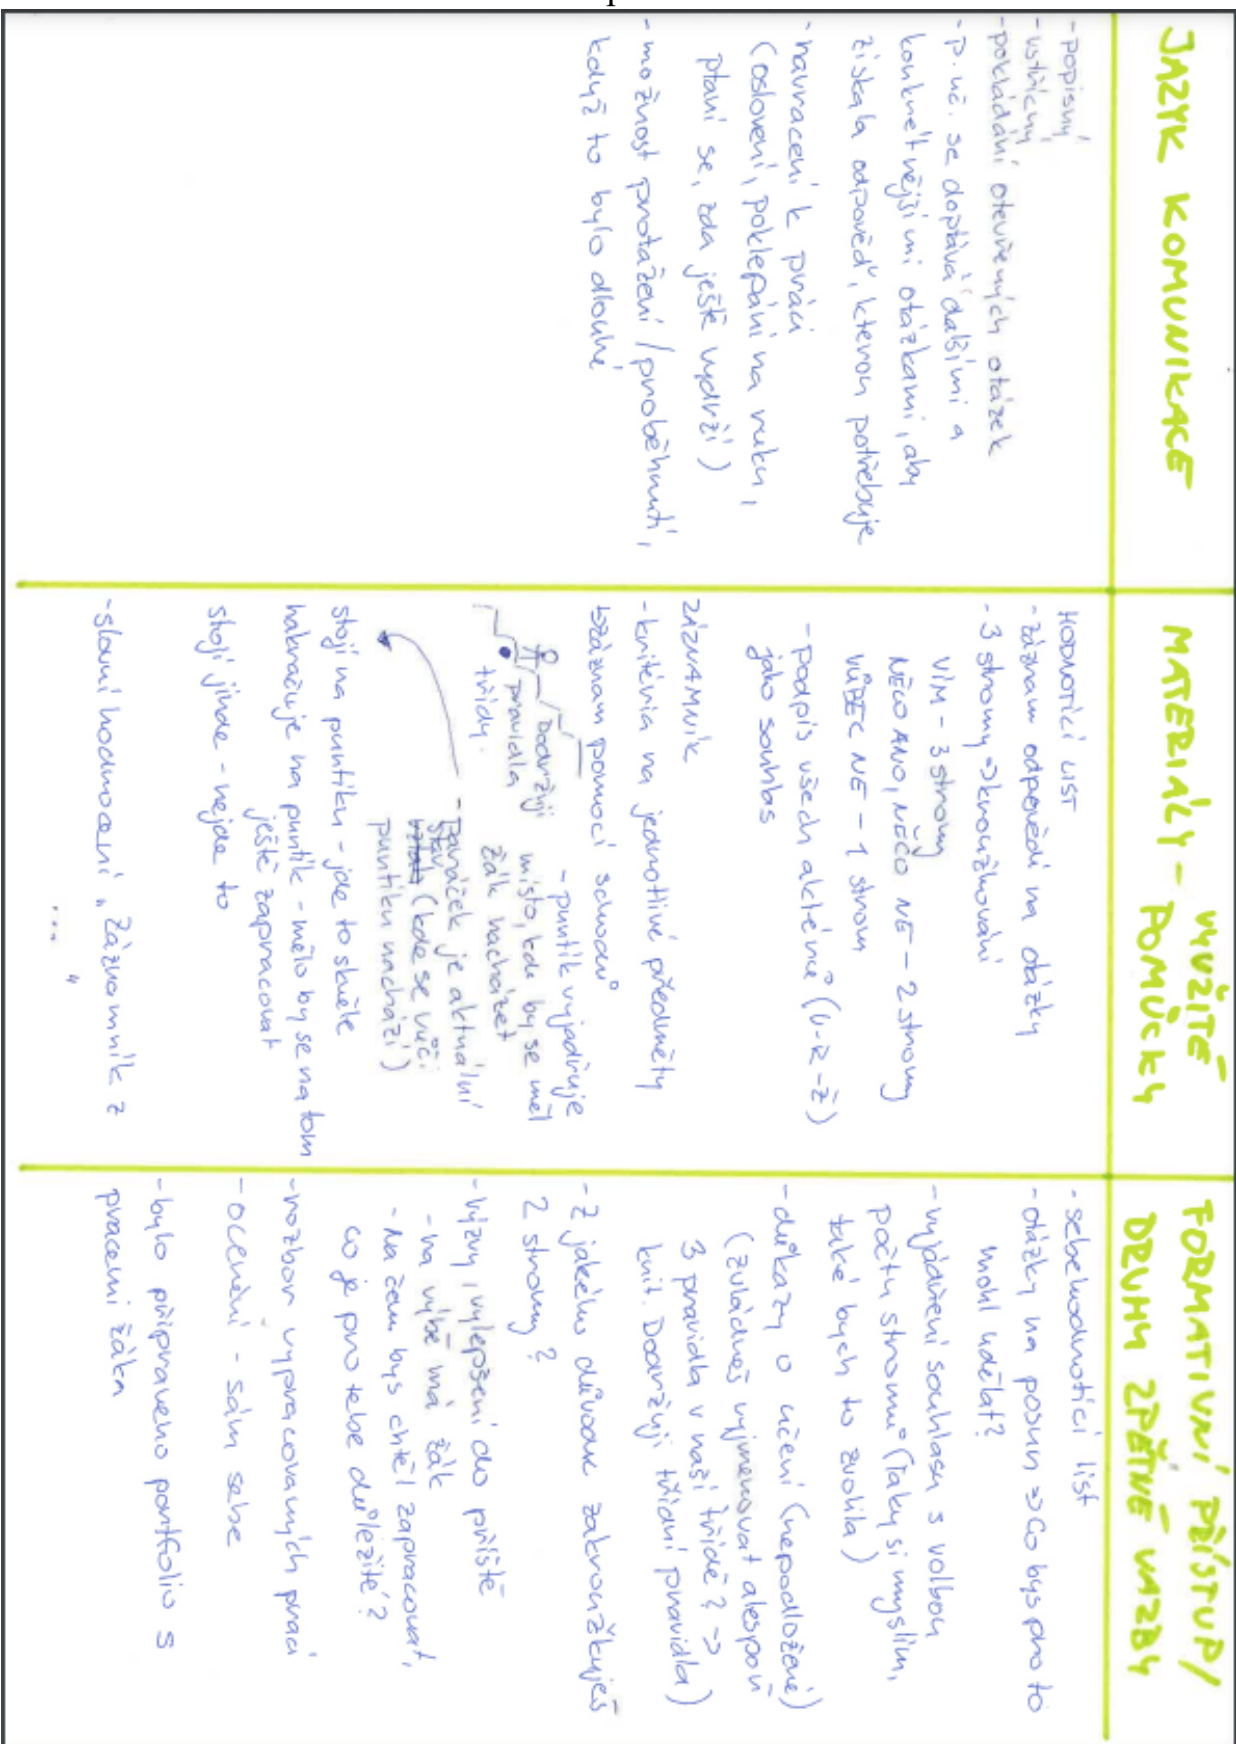 JAZYK KOMUNIKACE
- popisný
- vstřícný
- pokládání otevřených otázek
- p. uč. se doptává dalšími a
konkrétnějšími otázkami, aby
získala odpověď, kterou potřebuje
- navracení k práci
(oslovení, poklepání na ruku,
ptaní se, zda ještě vydrží)
- možnost protažení / proběhnutí,
když to bylo dlouhé
MATERIÁLY - VYUŽITÉ
POMŮCKY
HODNOTÍCÍ LIST
- záznam odpovědí na otázky
- 3 stromy => kroužkování
VÍM - 3 stromy
NĚCO ANO, NĚČO NE - 2 stromy
VŮBEC NE - 1 strom
- podpis všech aktérů (U-R-Ž)
jako souhlas
ZÁZNAMNÍK
- kritéria na jednotlivé předměty
záznam pomocí schodů
Dodržuji
pravidla
třídy.
- puntík vyjadřuje
místo, kde by se měl
žák nacházet
- panáček je aktuální
stav (kde se vůči
puntíku nachází)
stojí na puntíku - jde to skvěle
nakračuje na puntík - mělo by se na tom
ještě zapracovat
stojí jinde - nejde to
- slovní hodnocení „Záznamník z
... "
FORMATIVNÍ PŘÍSTUP/
DRUHY ZPĚTNÉ VAZBY
- sebehodnotící list
- otázky na posun => Co bys pro to
mohl udělat?
- vyjádření souhlasu s volbou
počtu stromů (Taky si myslím,
také bych to zvolila)
- důkazy o učení (nepodložené)
(zvládneš vyjmenovat alespoň
3 pravidla v naší třídě? ->
krit. Dodržuji třídní pravidla)
- Z jakého důvodu zakroužkuješ
2 stromy?
- výzvy, vylepšení do příště
- na výběr má žák
- Na čem bys chtěl zapracovat,
co je pro tebe důležité?
- rozbor vypracovaných prací
- ocenění - sám sebe
- bylo připraveno portfolio s
pracemi žáka